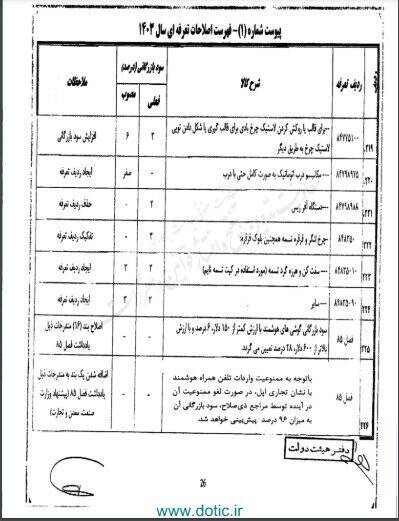 پیوست شماره (۱)- فهرست اصلاحات تعرفه ای سال ۱۴۰۳
ردیف تعرفه
شرح کالا
سود بازرگانی (درصد)
فعلی
مصوب
ملاحظات
۲۱۹
۸۴۷۷۵۱۰۰
--برای قالب یا روکش کردن لاستیک چرخ بادی برای قالب گیری یا شکل دادن تویی
لاستیک چرخ به طریق دیگر
۲
۶
افزایش سود بازرگانی
۲۲۰
۸۴۷۹۸۹۷۵
---مکانیسم درب اتوماتیک به صورت کامل حتی با درب
-
صفر
ایجاد ردیف تعرفه
۲۲۱
۸۴۷۹۸۹۸۸
---دستگاه آفر ریس
۲
-
حذف ردیف تعرفه
۲۲۲
۸۴۸۳۵۰
-چرخ لنگر و قرقره تسمه همچنین بلوک قرقره:
۲
-
تفکیک ردیف تعرفه
۲۲۳
۸۴۸۳۵۰۱۰
---سفت کن و هرزه گرد تسمه (مورد استفاده در کیت تسمه تایم)
۲
۲
ایجاد ردیف تعرفه
۲۲۴
۸۴۸۳۵۰۹۰
--- سایر
۲
۲
ایجاد ردیف تعرفه
۲۲۵
فصل ۸۵
سود بازرگانی گوشی های هوشمند با ارزش کمتر از ۱۵۰ دلار، ۶ درصد و با ارزش
بالاتر از ۶۰۰ دلار، ۲۸ درصد تعیین می گردد.
-
-
اصلاح بند (۱۶) مندرجات ذیل
یادداشت فصل ۸۵
۲۲۶
فصل ۸۵
باتوجه به ممنوعیت واردات تلفن همراه هوشمند
با نشان تجاری اپل، در صورت لغو ممنوعیت آن
در آینده توسط مراجع ذی‌صلاح، سود بازرگانی آن
به میزان ۹۶ درصد پیش‌بینی خواهد شد.
-
-
اضافه شدن یک بند به مندرجات ذیل
یادداشت فصل ۸۵ (پیشنهاد وزارت
صنعت، معدن و تجارت)
دفتر هیئت دولت
26
www.dotic.ir